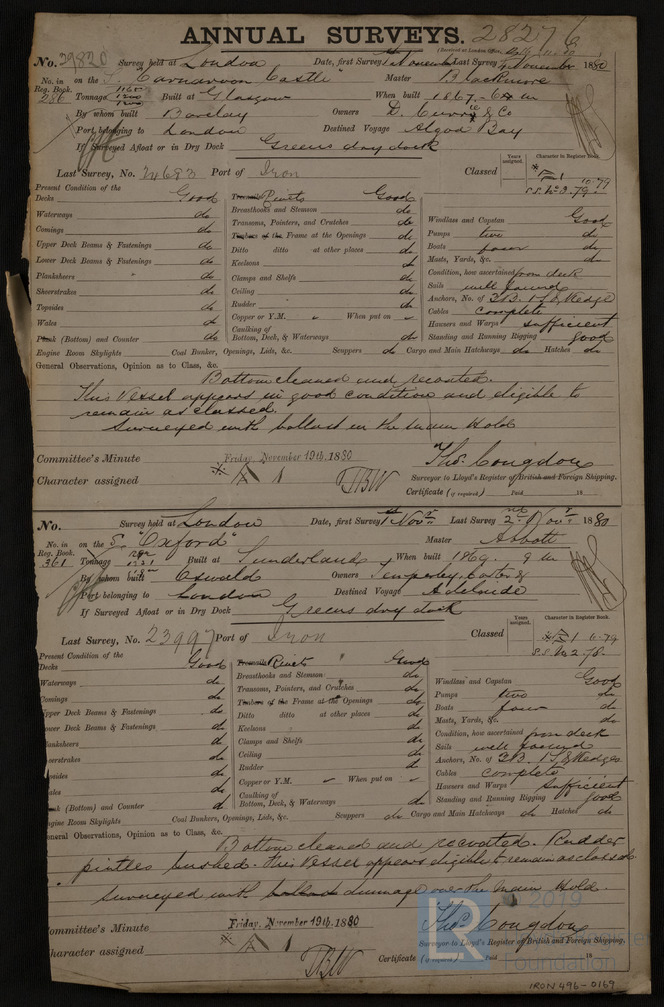 ANNUAL SURVEYS. 28276
No. 29820 Survey held at London Date, first Survey 1st November Last Survey November 1880
No. in Reg. Book. 286 on the S. "Carnarvon Castle" Master Blackmore
Tonnage Built at Glasgow When built 1867
By whom built Barclay Owners D. Currie & Co
Port belonging to London Destined Voyage Algoa Bay
If Surveyed Afloat or in Dry Dock Greens dry dock
Last Survey, No. 24683 Port of Iron Classed
Years assigned. Character in Register Book.
10-79
S.S. No 3. 79
Present Condition of the
Decks Good
Waterways do
Comings do
Upper Deck Beams & Fastenings do
Lower Deck Beams & Fastenings do
Planksheers do
Sheerstrakes do
Topsides do
Wales do
Plank (Bottom) and Counter do
Engine Room Skylights Coal Bunker, Openings, Lids, &c. Scuppers do Cargo and Main Hatchways do Hatches do
Treenails Rivets Good
Breasthooks and Stemson do
Transoms, Pointers, and Crutches do
Timbers of the Frame at the Openings do
Ditto ditto at other places do
Keelsons do
Clamps and Shelfs do
Ceiling do
Rudder do
Copper or Y.M. When put on
Caulking of Bottom, Deck, & Waterways do
Windlass and Capstan Good
Pumps two do
Boats four do
Masts, Yards, &c. do
Condition, how ascertained from deck
Sails well found
Anchors, No. of 3B. 1S. & Kedge
Cables complete
Hawsers and Warps sufficient
Standing and Running Rigging good
General Observations, Opinion as to Class, &c.
Bottom cleaned and recoated.
This Vessel appears in good condition and eligible to
remain as classed.
Surveyed with ballast in the main Hold
Committee's Minute Friday, November 19th, 1880
Character assigned A 1 TBW
Thos. Congdon
Surveyor to Lloyd's Register of British and Foreign Shipping.
Certificate (if required) Paid 18
No. Survey held at London Date, first Survey 1st Nov Last Survey 2nd Nov 1880
No. in Reg. Book. 361 on the S. "Oxford" Master Abbott
Tonnage Built at Sunderland When built 1869. 9 m
By whom built Oswald Owners Temperley, Carter &
Port belonging to London Destined Voyage Adelaide
If Surveyed Afloat or in Dry Dock Greens dry dock
Last Survey, No. 23997 Port of Iron Classed
Years assigned. Character in Register Book.
A 1 6-79
S.S. No 2. 78
Present Condition of the
Decks Good
Waterways do
Comings do
Upper Deck Beams & Fastenings do
Lower Deck Beams & Fastenings do
lanksheers do
eerstrakes do
psides do
ales do
nk (Bottom) and Counter do
ngine Room Skylights Coal Bunkers, Openings, Lids, &c. Scuppers do Cargo and Main Hatchways do Hatches do
Treenails Rivets Good
Breasthooks and Stemson do
Transoms, Pointers, and Crutches do
Timbers of the Frame at the Openings do
Ditto ditto at other places do
Keelsons do
Clamps and Shelfs do
Ceiling do
Rudder do
Copper or Y.M. When put on
Caulking of Bottom, Deck, & Waterways do
Windlass and Capstan Good
Pumps two do
Boats four do
Masts, Yards, &c. do
Condition, how ascertained from deck
Sails well found
Anchors, No. of 3B. 1S. & Kedges
Cables complete
Hawsers and Warps sufficient
Standing and Running Rigging good
eneral Observations, Opinion as to Class, &c.
Bottom cleaned and recoated. Rudder
pintles bushed. This Vessel appears eligible to remain as classed
Surveyed with dunnage over the main Hold.
ommittee's Minute Friday, November 19th, 1880
haracter assigned A 1 TBW
Thos. Congdon
Surveyor to Lloyd's Register of British and Foreign Shipping.
Certificate (if required) 18
© 2019
Foundation
IRON 496-0169